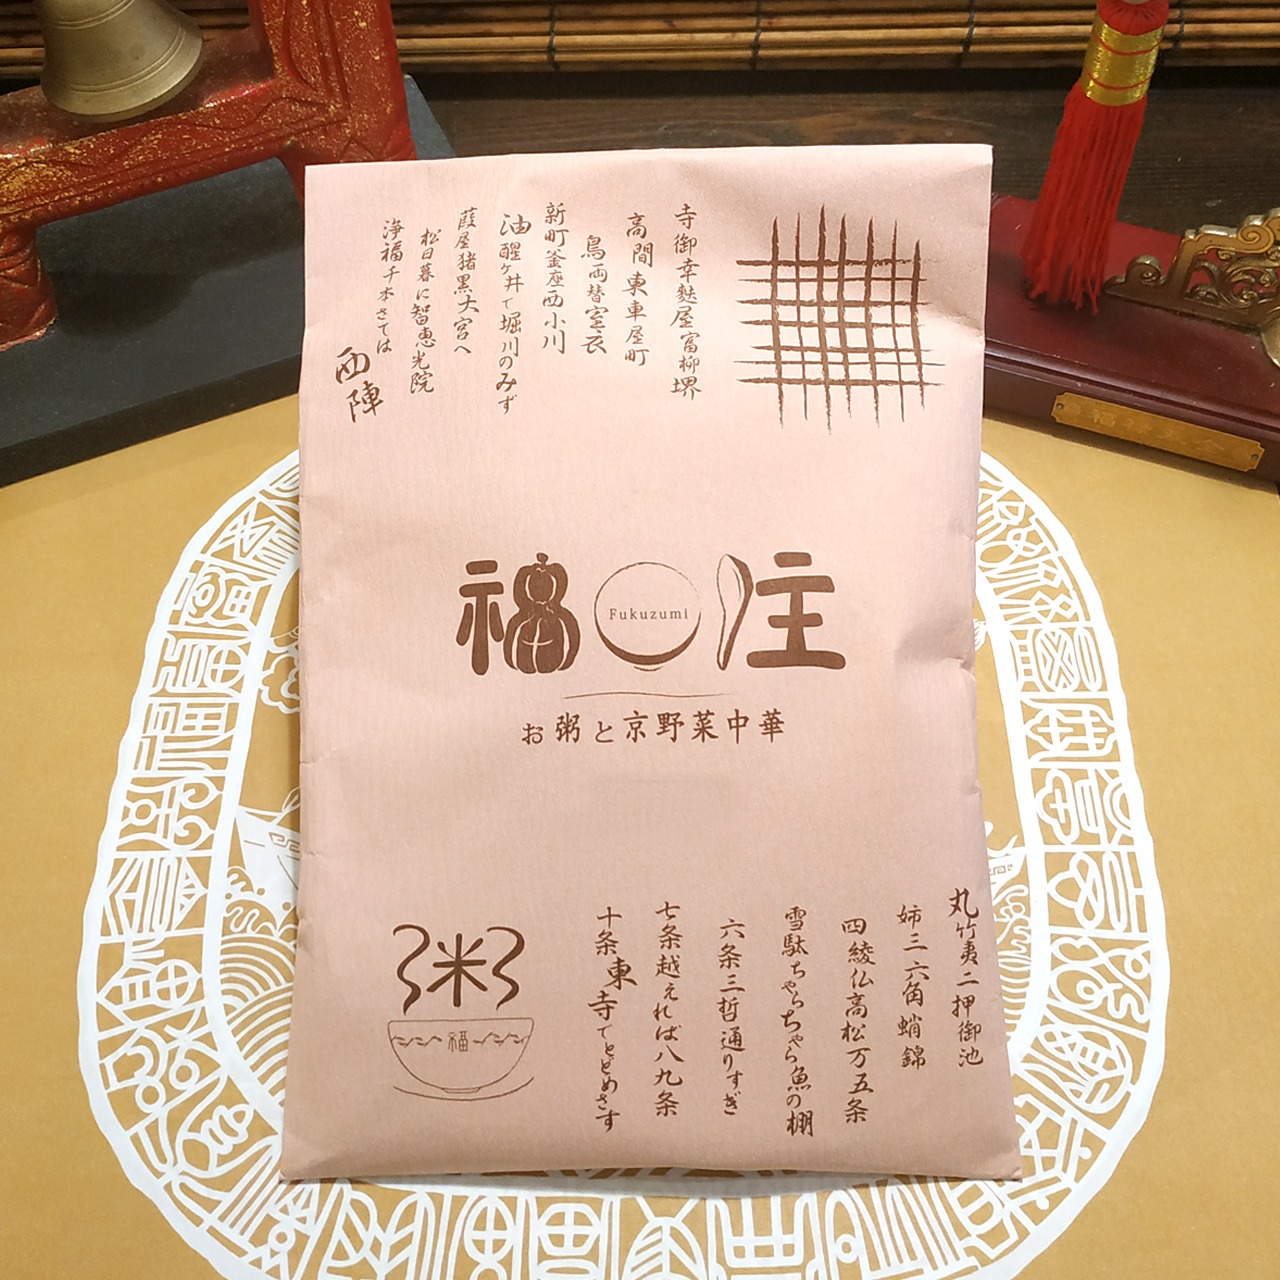 寺御幸麩屋富柳堺
高間東車屋町
烏両替室衣
新町釜座西小川
油醒ヶ井で堀川のみず
葭屋猪黒大宮へ
松日暮に智恵光院
浄福千本さては
西陣
福住
Fukuzumi
お粥と京野菜中華
丸竹夷二押御池
姉三六角蛸錦
四綾仏高松万五条
雪駄ちゃらちゃら魚の棚
六条三哲通りすぎ
七条越えれば八九条
十条東寺でとどめさす
粥
福